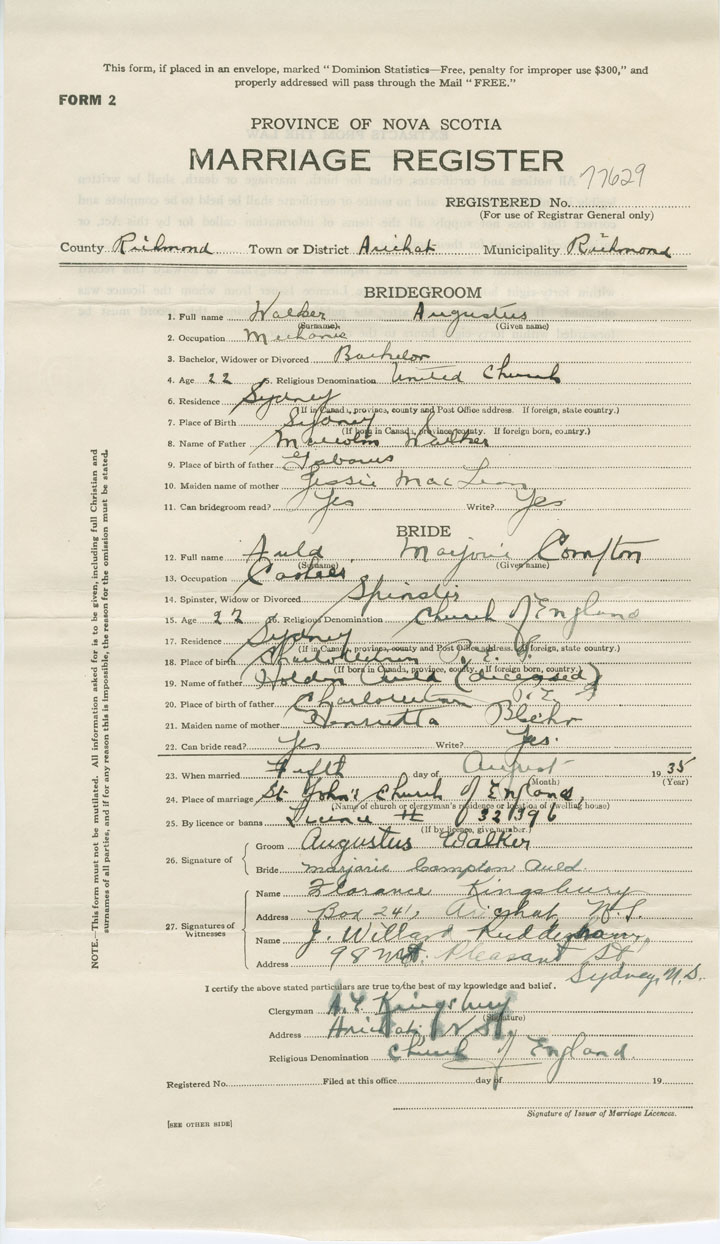 This form, if placed in an envelope, marked "Dominion Statistics—Free, penalty for improper use $300," and
properly addressed will pass through the Mail "FREE."
FORM 2
PROVINCE OF NOVA SCOTIA
MARRIAGE REGISTER
77629
REGISTERED No.
(For use of Registrar General only)
County Richmond Town or District Arichat Municipality Richmond
BRIDEGROOM
1. Full name Walker Augustus
(Surname) (Given name)
2. Occupation Mechanic
3. Bachelor, Widower or Divorced Bachelor
4. Age 22 5. Religious Denomination United Church
6. Residence Sydney
(If in Canada, province, county and Post Office address. If foreign, state country.)
7. Place of Birth Sydney
(If born in Canada, province, county. If foreign born, country.)
8. Name of Father Malcolm Walker
9. Place of birth of father Gabarus
10. Maiden name of mother Jessie MacLean
11. Can bridegroom read? Yes Write? Yes
BRIDE
12. Full name Auld, Marjorie Compton
(Surname) (Given name)
13. Occupation
14. Spinster, Widow or Divorced Spinster
15. Age 22 16. Religious Denomination Church of England
17. Residence Sydney
(If in Canada, province, county and Post Office address. If foreign, state country.)
18. Place of birth Charlottetown P. E. I.
(If born in Canada, province, county. If foreign born, country.)
19. Name of father Holdon Auld (deceased)
20. Place of birth of father Charlottetown P. E. I
21. Maiden name of mother Henrietta
22. Can bride read? Yes Write? Yes.
23. When married Fifth day of August 1935
(Month) (Year)
24. Place of marriage St John's Church of England,
(Name of church or clergyman's residence or location of dwelling house)
25. By licence or banns Licence # 321396
(If by licence, give number.)
26. Signature of
Groom Augustus Walker
Bride Marjorie Compton Auld.
27. Signatures of Witnesses
Name Florance Kingsbury
Address Box 241, Arichat, N.S.
Name J. Willard
Address 98 Mt. Pleasant St
Sydney, N.S.
I certify the above stated particulars are true to the best of my knowledge and belief.
Clergyman Kingsbury
(Signature)
Address Arichat, N S.
Religious Denomination Church of England.
Registered No. Filed at this office day of 19
Signature of Issuer of Marriage Licences.
[SEE OTHER SIDE]
NOTE.—This form must not be mutilated. All information asked for is to be given, including full Christian and
surnames of all parties, and if for any reason this is impossible, the reason for the omission must be stated.